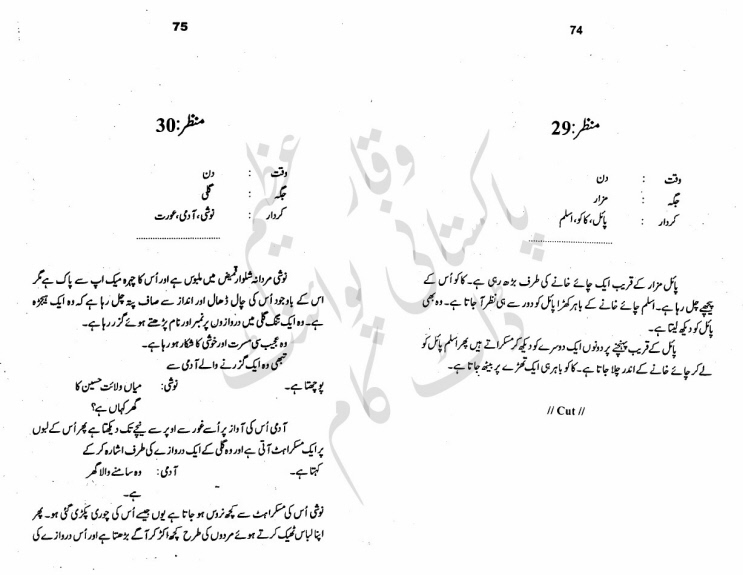 74
منظر:29
وقت : دن
جگہ : مزار
کردار : پائل، کاکو، اسلم
پائل مزار کے قریب ایک چائے خانے کی طرف بڑھ رہی ہے۔ کاکو اُس کے
پیچھے چل رہا ہے۔ اسلم چائے خانے کے باہر کھڑا پائل کو دور سے ہی نظر آ جاتا ہے۔ وہ بھی
پائل کو دیکھ لیتا ہے۔
پائل کے قریب پہنچنے پر دونوں ایک دوسرے کو دیکھ کر مسکراتے ہیں پھر اسلم پائل کو
لے کر چائے خانے کے اندر چلا جاتا ہے۔ کاکو باہر ہی ایک تھڑے پر بیٹھ جاتا ہے۔
// Cut //
75
منظر:30
وقت : دن
جگہ : گلی
کردار : نوشی، آدمی، عورت
نوشی مردانہ شلوار قمیض میں ملبوس ہے اور اُس کا چہرہ میک اپ سے پاک ہے مگر
اس کے باوجود اُس کی چال ڈھال اور انداز سے صاف پتہ چل رہا ہے کہ وہ ایک ہیجڑہ
ہے۔ وہ ایک تنگ گلی میں دروازوں پر نمبر اور نام پڑھتے ہوئے گزر رہا ہے۔
وہ عجیب سی مسرت اور خوشی کا شکار ہو رہا ہے۔
تبھی وہ ایک گزرنے والے آدمی سے
پوچھتا ہے۔ نوشی: میاں ولائت حسین کا
گھر کہاں ہے؟
آدمی اُس کی آواز پر اُسے غور سے اوپر سے نیچے تک دیکھتا ہے پھر اُس کے لبوں
پر ایک مسکراہٹ آتی ہے اور وہ گلی کے ایک دروازے کی طرف اشارہ کر کے
کہتا ہے۔ آدمی: وہ سامنے والا گھر
ہے۔
نوشی اُس کی مسکراہٹ سے کچھ نروس ہو جاتا ہے یوں جیسے اُس کی چوری پکڑی گئی ہو۔ پھر
اپنا لباس ٹھیک کرتے ہوئے مردوں کی طرح کچھ اکڑ کر آگے بڑھتا ہے اور اُس دروازے کی
وقار عظیم
پاکستانی پوائنٹ
ڈاٹ کام